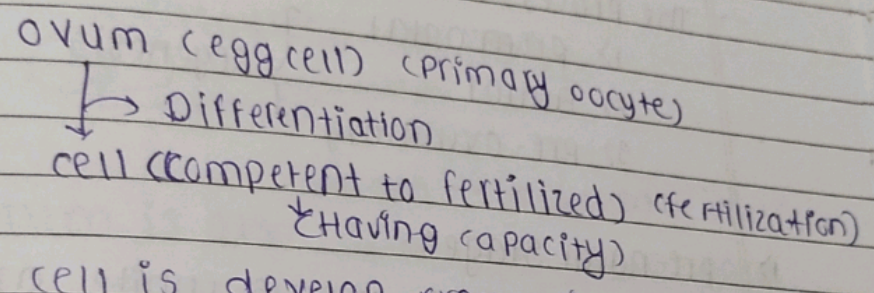 Ovum (egg cell) (primary oocyte)
Differentiation
cell (competent to fertilized) (fertilization)
(Having capacity)
cell is develop